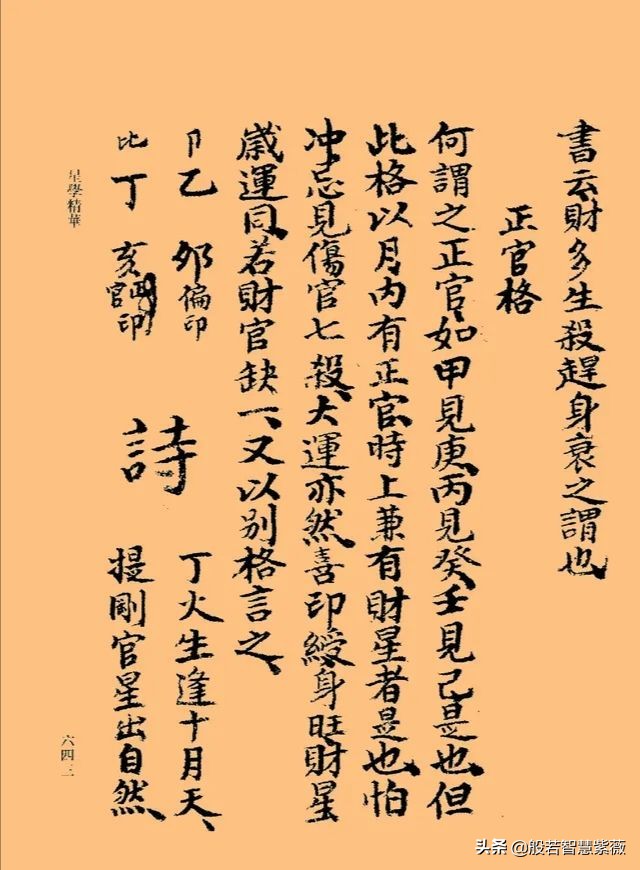 書云財多生殺趕身衰之謂也
正官格
何謂之正官、如甲見庚、丙見癸、壬見己是也、但
此格以月內有正官、時上兼有財星者是也、怕
冲、忌見傷官七殺、大運亦然、喜印綬、身旺財星
歲運同、若財官缺一、又以别格言之、
卩乙 夘 偏印
比丁 亥 官印
詩
丁火生逢十月天、
提剛官星出自然、
星學精華
六四三
头条 @般若智慧紫薇